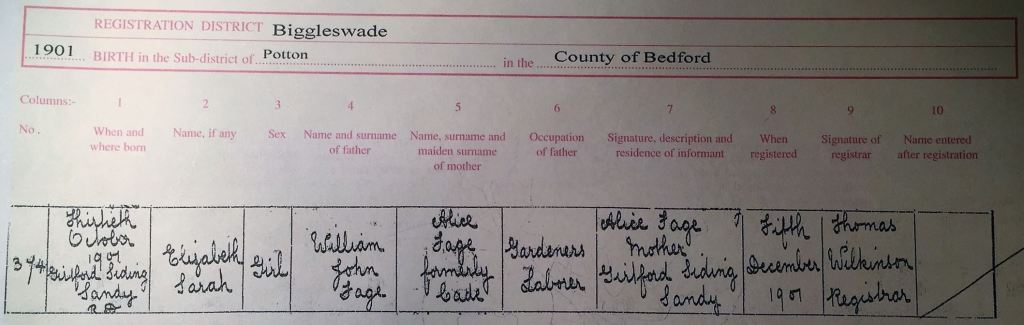 REGISTRATION DISTRICT Biggleswade
1901 BIRTH in the Sub-district of Potton in the County of Bedford
Columns:- 1 2 3 4 5 6 7 8 9 10
No. When and where born Name, if any Sex Name and surname of father Name, surname and maiden surname of mother Occupation of father Signature, description and residence of informant When registered Signature of registrar Name entered after registration
374
Thirtieth
October
1901
Girlford Siding
Sandy
R.D
Elizabeth
Sarah
Girl
William
John
Page
Alice
Page
formerly
Cade
Gardeners
Laborer
Alice Page
Mother
Girlford Siding
Sandy
Fifth
December
1901
Thomas
Wilkinson
Registrar